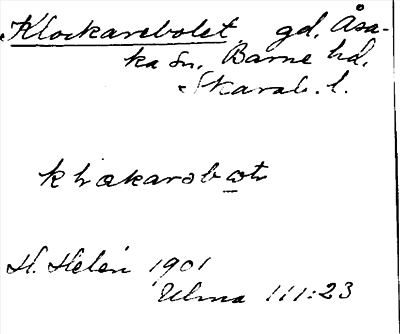 Klockarebolet gd, Åsa-
ka sn, Barne hd,
Skarab. l.
H. Helén 1901
Ulma 111:23